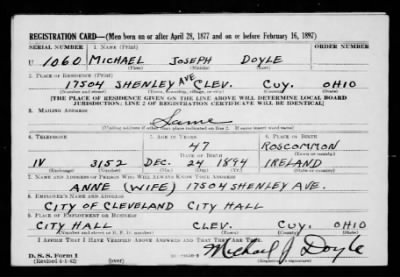 REGISTRATION CARD—(Men born on or after April 28, 1877 and on or before February 16, 1897)
SERIAL NUMBER 1. NAME (Print) ORDER NUMBER
U 1060 MICHAEL JOSEPH DOYLE
2. PLACE OF RESIDENCE (Print)
17504 SHENLEY AVE CLEV. CUY. OHIO
(Number and street) (Town, township, village, or city) (County) (State)
[THE PLACE OF RESIDENCE GIVEN ON THE LINE ABOVE WILL DETERMINE LOCAL BOARD
JURISDICTION; LINE 2 OF REGISTRATION CERTIFICATE WILL BE IDENTICAL]
3. MAILING ADDRESS
Same
(Mailing address if other than place indicated on line 2. If same insert word same)
4. TELEPHONE 5. AGE IN YEARS 6. PLACE OF BIRTH
47 ROSCOMMON
DATE OF BIRTH (Town or county)
IV 3152 DEC. 24 1894 IRELAND
(Exchange) (Number) (Mo.) (Day) (Yr.) (State or country)
7. NAME AND ADDRESS OF PERSON WHO WILL ALWAYS KNOW YOUR ADDRESS
ANNE (WIFE) 17504 SHENLEY AVE.
8. EMPLOYER'S NAME AND ADDRESS
CITY OF CLEVELAND CITY HALL
9. PLACE OF EMPLOYMENT OR BUSINESS
CITY HALL CLEV. CUY. OHIO
(Number and street or R. F. D. number) (Town) (County) (State)
I AFFIRM THAT I HAVE VERIFIED ABOVE ANSWERS AND THAT THEY ARE TRUE.
D. S. S. Form 1
(Revised 4-1-42) (over) Michael J Doyle